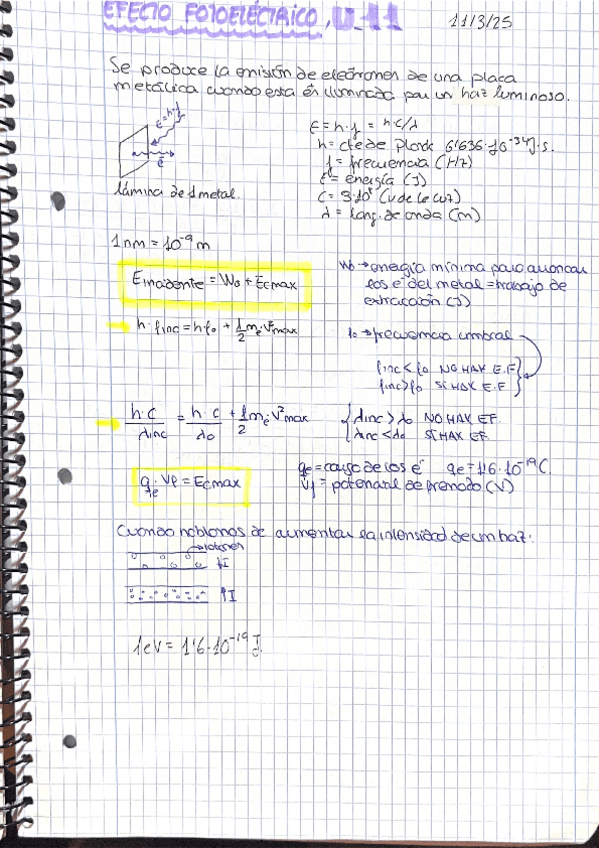 EFECTO FOTOELÉCTRICO, U.11
11/3/25
Se produce la emisión de electrones de una placa
metálica cuando esta es iluminada por un haz luminoso.
E=h·f
e⁻
lámina de metal.
E=h·f = h·c/λ
h= cte de Planck 6'636·10⁻³⁴J·s.
f= frecuencia (Hz)
E= energía (J)
c= 3·10⁸ (v de la luz)
λ= long. de onda (m)
1nm = 10⁻⁹ m
Eincidente = W0 + Ecmax
W0 → energía mínima para arrancar
los e⁻ del metal = trabajo de
extracción (J)
h·finc = h·f0 + 1/2 me·v²max
f0 → frecuencia umbral
finc < f0 NO HAY E.F
finc > f0 SÍ HAY E.F
h·c/λinc = h·c/λ0 + 1/2 me·v²max
λinc > λ0 NO HAY EF.
λinc < λ0 SÍ HAY EF.
qe = carga de los e⁻ qe = 1'6·10⁻¹⁹C.
Vf = potencial de frenado (V)
Cuando hablamos de aumentar la intensidad de un haz:
fotones
↓I
↑I
1eV = 1'6·10⁻¹⁹ J.